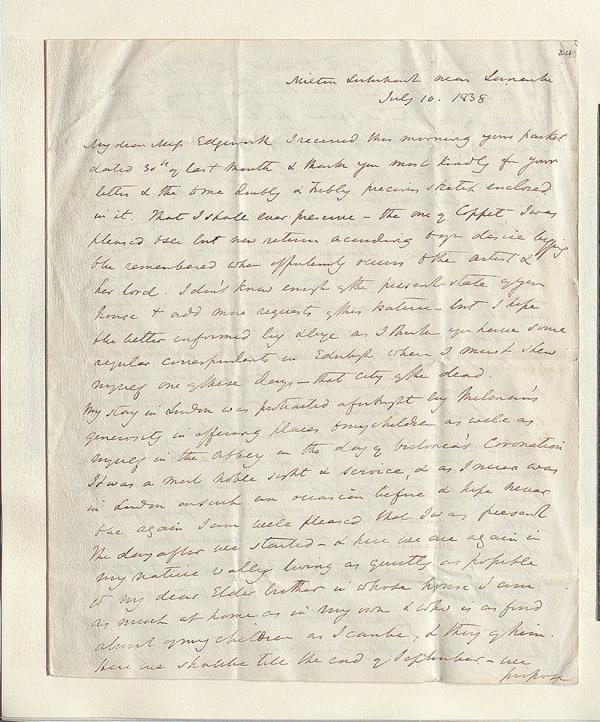 24
Milton Lockhart near Lanark
July 10. 1838
My dear Miss Edgeworth I received this morning your packet
dated 30th of last Month & thank you most kindly for your
letter & the one doubly & trebly precious sketch enclosed
in it. That I shall ever preserve – the one of Coppet I was
pleased to see but now return according to your desire begging
to be remembered when opportunity occurs to the artist &
her lord. I don't know enough of the present state of your
house to add more requests of this nature – but I hope
to be better informed by & bye as I think you have some
regular correspondents in Edinbgh where I must shew
myself one of these days – that city of the dead.
My stay in London was protracted a fortnight by Melbourne's
generosity in offering places to my children as well as
myself in the Abbey on the day of Victoria's Coronation
It was a most noble sight & service, & as I never was
in London on such an occasion before & hope never
to be again I am well pleased that I was present
The day after we started – & here we are again in
my native valley living as quietly as possible
w my dear Elder brother in whose house I am
as much at home as in my own & who is as fond
almost of my children as I can be, & they of him.
Here we shall be till the end of September – we
purpose